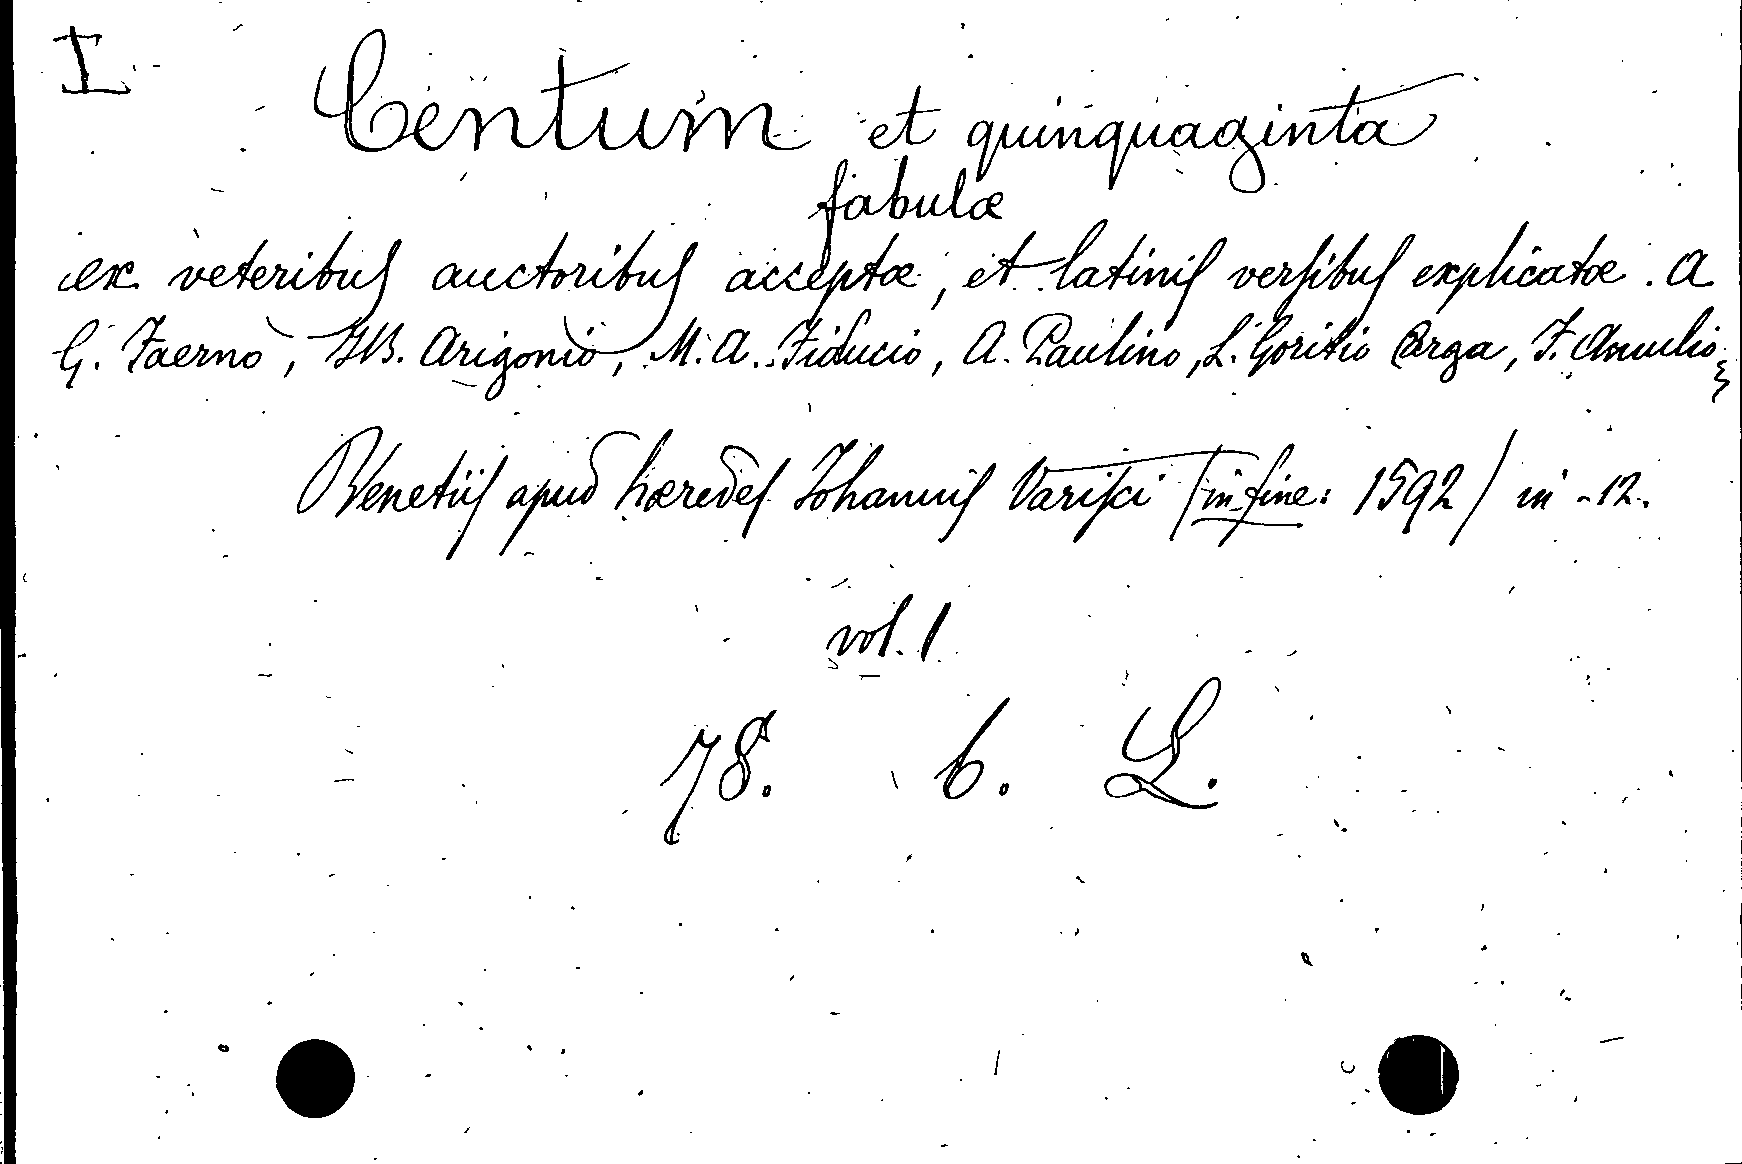 I
Centum et quinquaginta
fabulæ
ex veteribus auctoribus acceptæ, et latinis versibus explicatæ. A
G. Faerno, I.B. Arigonio, M. A. Fiducio, A. Paulino, L. Goritio Carga, F. Amulio
Venetiis apud hæredes Iohannis Varisci (in fine: 1592) in -12.
vol. 1
78. 6. L.